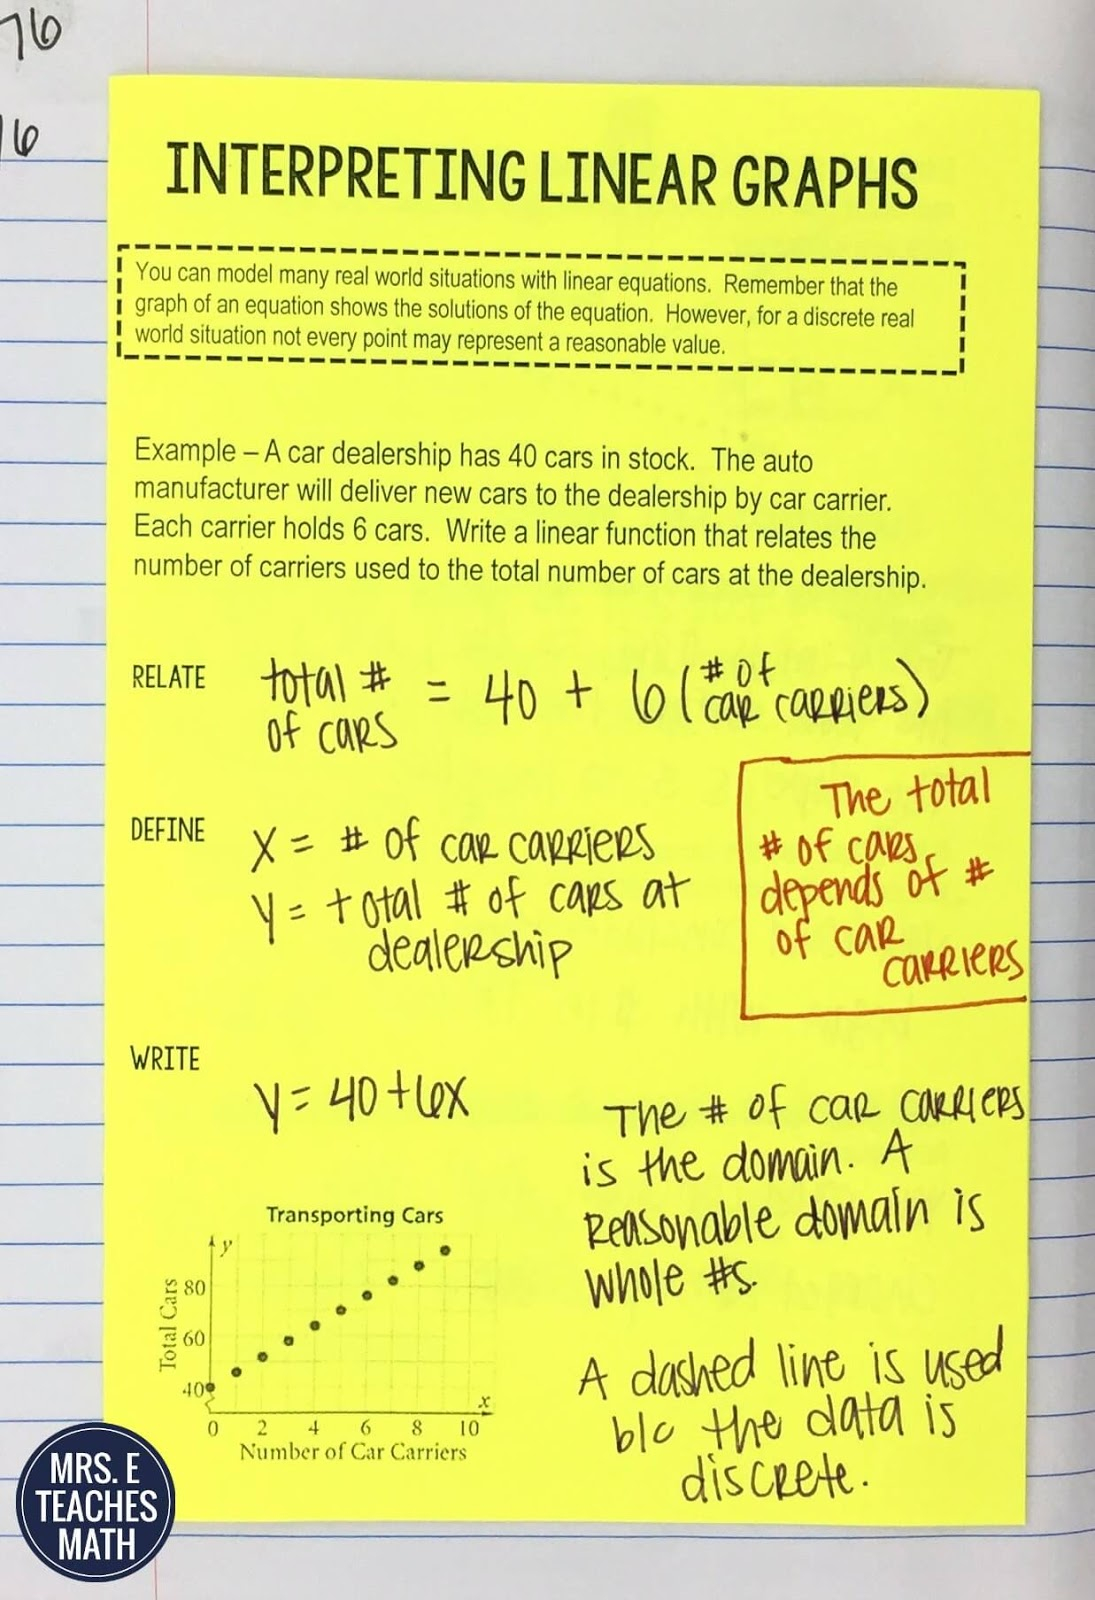 76
16
INTERPRETING LINEAR GRAPHS
You can model many real world situations with linear equations. Remember that the
graph of an equation shows the solutions of the equation. However, for a discrete real
world situation not every point may represent a reasonable value.
Example – A car dealership has 40 cars in stock. The auto
manufacturer will deliver new cars to the dealership by car carrier.
Each carrier holds 6 cars. Write a linear function that relates the
number of carriers used to the total number of cars at the dealership.
RELATE
total #
of cars
= 40 + 6 (# of
car carriers)
The total
# of cars
depends of #
of car
carriers
DEFINE
x = # of car carriers
y = total # of cars at
dealership
WRITE
y = 40 + 6x
The # of car carriers
is the domain. A
Reasonable domain is
whole #s.
A dashed line is used
b/c the data is
discrete.
Transporting Cars
y
Total Cars
80
60
40
x
0 2 4 6 8 10
Number of Car Carriers
MRS. E
TEACHES
MATH